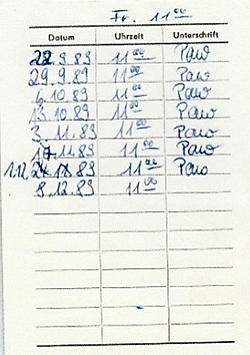 Fr. 11⁰⁰
Datum Uhrzeit Unterschrift
22.9.89 11⁰⁰ Paw
29.9.89 11⁰⁰ Paw
6.10.89 11⁰⁰ Paw
13.10.89 11⁰⁰ Paw
3.11.89 11⁰⁰ Paw
17.11.89 11⁰⁰ Paw
1.12. 89 11⁰⁰ Paw
8.12.89 11⁰⁰